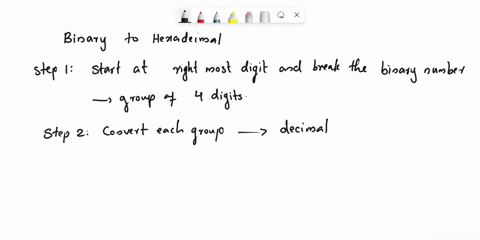 Binary to Hexadeimal
Step 1: Start at right most digit and break the binary number
→ group of 4 digits.
Step 2: Convert each group → decimal